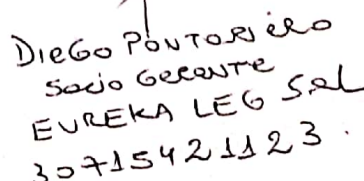 DIEGO PONTORIERO
Socio Gerente
EUREKA LEG S.R.L
30715421123.